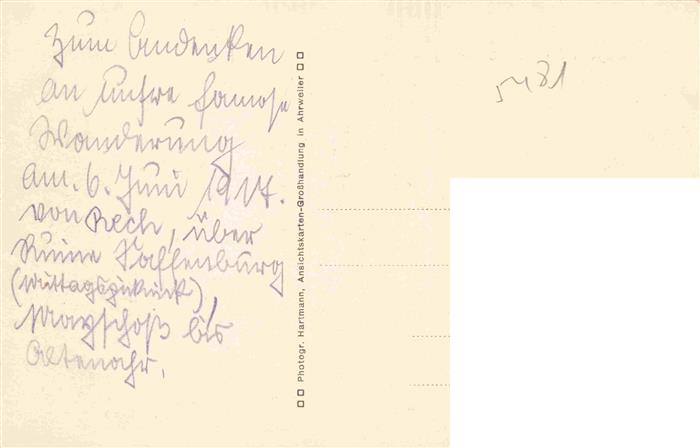 Zum Andenken
an unsre famose
Wanderung
am. 6. Juni 1917.
von Rech, über
Ruine Saffenburg
(Mittagspicknick),
Mayschoß bis
Altenahr.
Photogr. Hartmann, Ansichtskarten-Großhandlung in Ahrweiler
5481